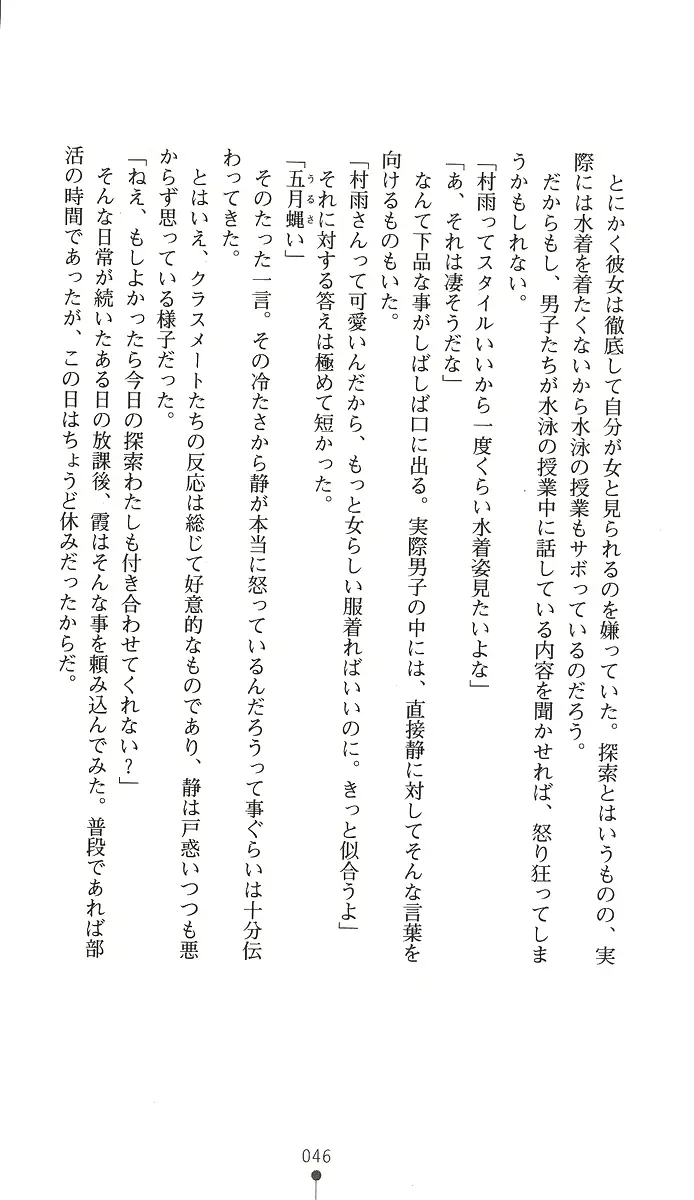 とにかく彼女は徹底して自分が女と見られるのを嫌っていた。探索とはいうものの、実
際には水着を着たくないから水泳の授業もサボっているのだろう。
だからもし、男子たちが水泳の授業中に話している内容を聞かせれば、怒り狂ってしま
うかもしれない。
「村雨ってスタイルいいから一度くらい水着姿見たいよな」
「あ、それは凄そうだな」
なんて下品な事がしばしば口に出る。実際男子の中には、直接静に対してそんな言葉を
向けるものもいた。
「村雨さんって可愛いんだから、もっと女らしい服着ればいいのに。きっと似合うよ」
それに対する答えは極めて短かった。
「五月蝿い」
うるさ
そのたった一言。その冷たさから静が本当に怒っているんだろうって事ぐらいは十分伝
わってきた。
とはいえ、クラスメートたちの反応は総じて好意的なものであり、静は戸惑いつつも悪
からず思っている様子だった。
「ねえ、もしよかったら今日の探索わたしも付き合わせてくれない?」
そんな日常が続いたある日の放課後、霞はそんな事を頼み込んでみた。普段であれば部
活の時間であったが、この日はちょうど休みだったからだ。
046